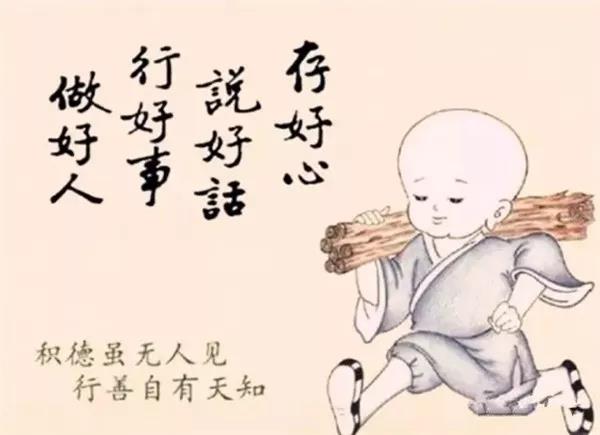 存好心
說好話
行好事
做好人
积德虽无人见
行善自有天知